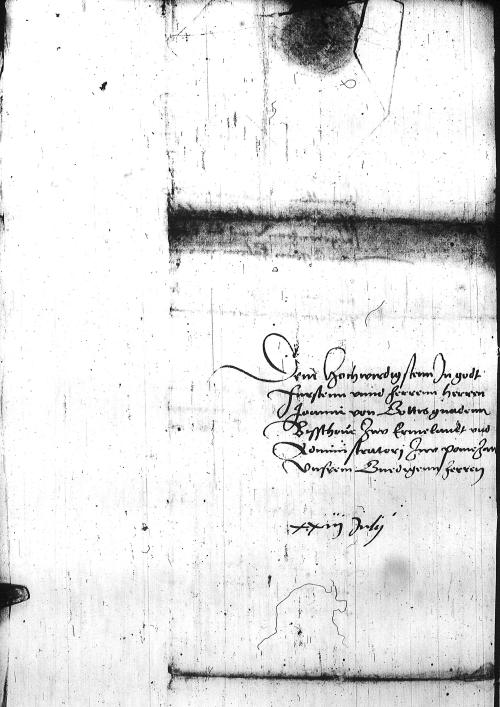 Dem Hochwirdigstenn In godt
furstenn vnnd herrenn herren
Joanni von Gottis gnadenn
Bisschoue zwo Ermelandt vnd
Administratori zwo pomezan
Vnserm Gnedigenn herren
xxiij Julij